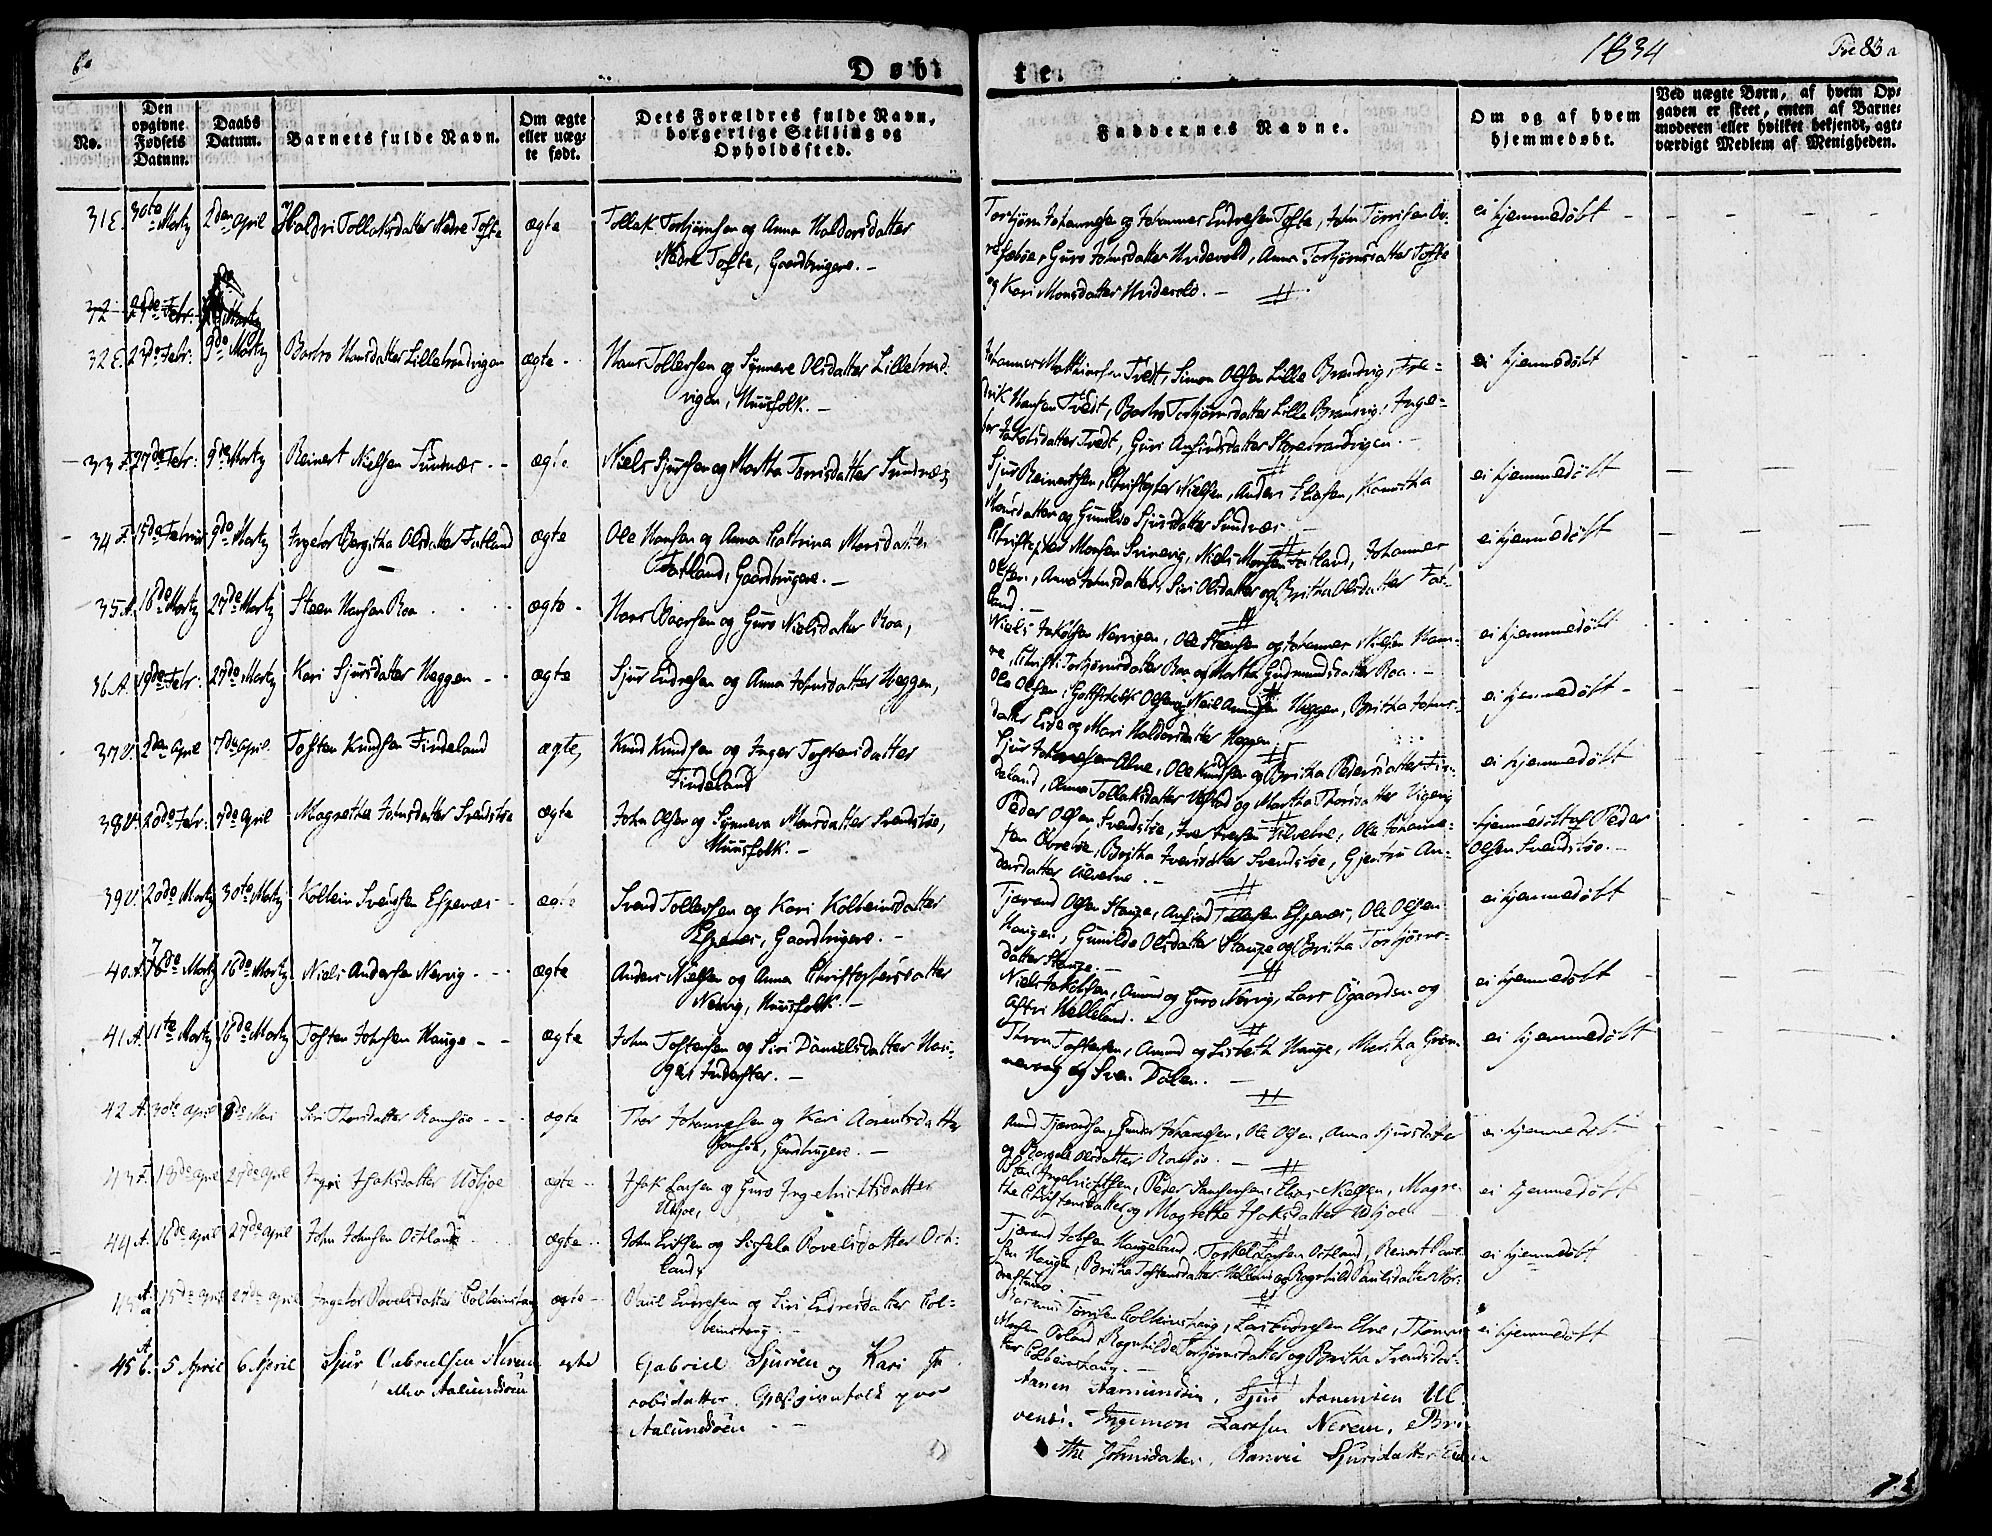 1834
83 a
Døbte
No.
Den opgivne Fødsels Datum.
Daabs Datum.
Barnets fulde Navn.
Om ægte eller uægte født.
Dets Forældres fulde Navn, borgerlige Stilling og Opholdssted.
Faddernes Navne.
Om og af hvem hjemmedøbt.
Ved uægte Børn, af hvem Opgaven er skeet, enten af Barnemoderen eller hvilket bekjendt, agtværdigt Medlem af Menigheden.
31 E. 30te Martz 2den April Haldri Tollaksdatter Nedre Tofte ægte Tollak Torbjørnsen og Anna Haldorsdatter
Nedre Tofte, Gaardbrugere. -
Torbjørn Johannesen og Johannes Endresen Tofte, John Tørrisen Øv-
refæbøe, Guro Johnsdatter Hvidevold, Anna Torbjørnsdatter Tofte
og Kari Monsdatter Hvidevold. -
ei hjemmedøbt
32 E. 23de Febr: 9de Martz Barbro Hansdatter Lillebrandvigen ægte Hans Tollevsen og Synneve Olsdatter Lillebrand-
vigen, Huusfolk. -
Johannes Mathiesen Tvedt, Simon Olsen Lille Brandvig, Fre-
drik Hansen Tvedt, Barbro Torbjørnsdatter Lille Brandvig, Inge-
bor Jakobsdatter Tvedt, Guri Anfindsdatter Storebrandvigen. -
ei hjemmedøbt
33 F. 27de Febr: 9de Martz Reinert Nielsen Sundnæs ægte Niels Sjursen og Martha Tørrisdatter Sundnæs,
Sjur Reinertsen, Christopher Nielsen, Anders Elasen,
Monsdatter og Gunilde Sjursdatter Sundnæs
ei hjemmedøbt
34 F. 15de Februar 9de Martz Ingebor Bergitha Olsdatter Fatland ægte Ole Hansen og Anna Cathrina Monsdatter
Fatland, Gaardbrugere. -
Christopher Monsen Svinevig, Niels Monsen Fatland, Johannes
Olsen, Anna Johnsdatter, Siri Olsdatter og Britha Olsdatter Fat-
land. -
ei hjemmedøbt
35 A. 16de Martz 27de Martz Steen Hansen Roa ægte Hans Baarsen og Guro Nielsdatter Roa,
Niels Jakobsen Nervigen, Ole Steensen og Johannes Nielsen Ham-
re, Christi Torbjørnsdatter Roa og Martha Gudmundsdatter Roa. -
ei hjemmedøbt
36 A. 19de Febr: 27de Martz Kari Sjursdatter Heggen ægte Sjur Endresen og Anna Johnsdatter Heggen,
Ole Olsen, Gottschalk Olsen, Neil Amundsen Heggen, Britha Johns-
datter Eide og Mari Haldorsdatter Heggen
ei hjemmedøbt
37 V. 2den April 7de April Tosten Knudsen Findeland ægte, Knud Knudsen og Inger Tostensdatter
Findeland
Sjur Johannesen Alne, Ole Knudsen og Britha Pedersdatter Fin-
deland, Anna Tollaksdatter Vestad og Martha Thorsdatter Vigevig
ei hjemmedøbt
38 V. 20de Febr: 7de April Magretha Johnsdatter Svendsbøe ægte John Olsen og Synneva Monsdatter Svendsbøe,
Huusfolk. -
Peder Olsen Svendsbøe, Iver Iversen Ulvebne, Ole Johanne-
sen Øvrebøe, Britha Iversdatter Svendsbøe, Gjertru An-
dersdatter Ulvebne. -
hjemmedøbt af Peder
Olsen Svendsbøe. -
39 V. 20de Martz 30te Martz Kolbein Svendsen Espenæs ægte Svend Tollevsen og Kari Kolbeinsdatter
Espenæs, Gaardbrugere. -
Tjærand Olsen Stange, Anfind Tollevsen Espenæs, Ole Olsen
Haugen, Gunilde Olsdatter Stange og Britha Torbjørns-
datter Stange. -
ei hjemmedøbt
40 A. 16de Martz Niels Andersen Nervig ægte Anders Nielsen og Anna Christophersdatter
Nervig, Huusfolk. -
Niels Jakobsen, Amund og Guro Nervig, Lars Øgaarden og
Astri Helleland.
ei hjemmedøbt
41 A. 11te Martz 16de Martz Tosten Johnsen Hauge ægte John Tostensen og Siri Danielsdatter Hau-
ge, Inderster. -
Thron Tostensen, Amund og Lisbeth Hauge, Meritha Grøn-
nevaag og Sven Dalen. -
ei hjemmedøbt
42 A. 30te April 8de Mai Siri Thorsdatter Ramsøe ægte Thor Johannesen og Kari Aamundsdatter
Ramsøe, Gaardbrugere. -
Amund Tjærandsen, Gunder Johannesen, Ole Olsen, Anna Sjursdatter
og Olsdatter Ramsøe. -
ei hjemmedøbt
43 F. 18de April 27de April Ingri Isaksdatter Udljoe ægte Isak Larsen og Guro Ingebrichtsdatter
Udljoe,
Ingebrichtsen, Peder Larsen, Elias Nielsen, Magre-
the Christensdatter og Magrethe Isaksdatter Udljoe
ei hjemmedøbt
44 A. 16de April 27de April John Johnsen Østland ægte John Ericksen og Sissela Povelsdatter Øst-
land,
Tjærand Johnsen Haugeland, Torkel Larsen Østland, Reinert Paul-
sen Haugen, Britha Tostensdatter Helland og Ragnhild Paulsdatter
ei hjemmedøbt
45 A. a. 15de April 27de April Ingebor Povelsdatter Kolbeinshaug ægte Paul Endresen og Siri Endresdatter Kol-
beinshaug. -
Rasmus Tørrisen Kolbeinshaug, Lars Endresen Elve, Thomas
Monsen Øvland, Ragnhilde Torbjørnsdatter og Britha Svendsdat-
ter Kolbeinshaug. -
ei hjemmedøbt
45 A. b. 5 April 6 April Sjur Gabrielsen Nereim
eller Aalundsøen
egte Gabriel Sjursen og Kari Ja-
cobsdatter. Gjæstgiverfolk paa
Aalundsøen
Aanen Aamundsen, Sjur Aanensen Ul-
venes. Ingemon Larssen Nereim, Bri-
the Johnsdatter, Ranvei Sjursdatter